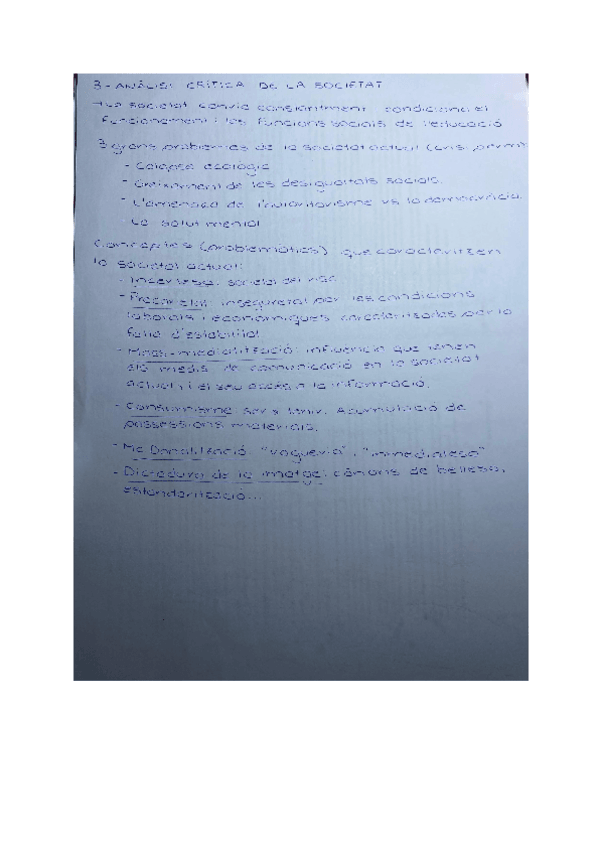 3 - ANÀLISI CRÍTICA DE LA SOCIETAT
→ La societat canvia constantment condiciona el
funcionament i les funcions socials de l'educació
3 grans problemes de la societat actual (crisi perm
- Colapse ecològic
- Creixement de les desigualtats socials.
- L'amenaça de l'autoritarisme vs la democràcia.
- La salut mental
Conceptes (problemàtics) que caracteritzen
la societat actual:
- Incertesa: societat del risc
- Precarietat: inseguretat per les condicions
laborals i econòmiques caracteritzades per la
falta d'estabilitat
- influència que tenen
els medis de comunicació en la societat
actual, i el seu accés a la informació.
- Consumisme ser x tenir. Acumulació de
possessions materials.
- Mc Donalització: "vagueria", "immediatesa"
- Dictadura de la imatge: cànons de bellesa,
estandarització...